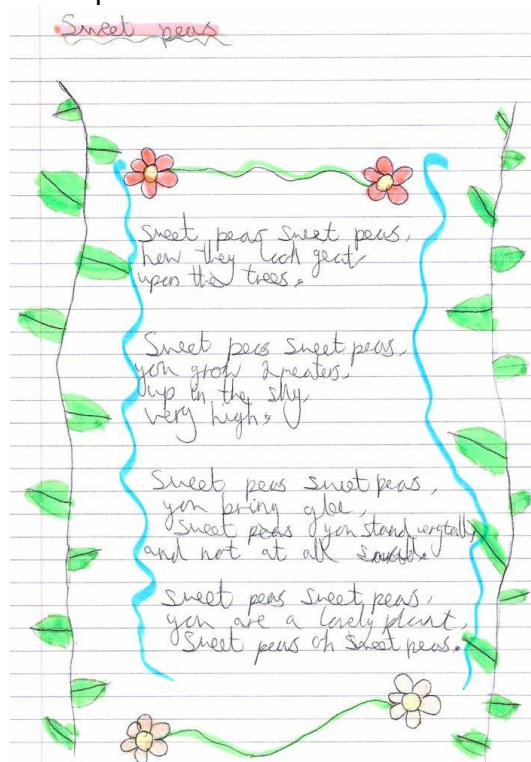 Sweet peas
Sweet peas sweet peas,
how they look geat
upon the trees.
Sweet peas sweet peas,
you grow 2 meaters,
up in the sky
very high.
Sweet peas sweet peas,
you bring glee,
Sweet peas you stand very tall,
and not at all small.
sweet peas sweet peas,
you are a lovely plant,
Sweet peas oh sweet peas.